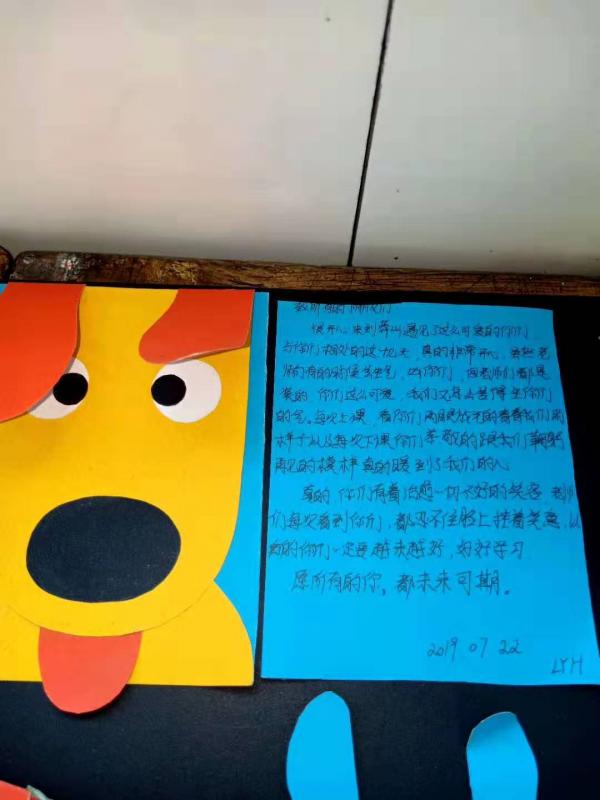 致所有的小朋友们
很开心来到霍州遇见了这么可爱的你们
与你们相处的这九天，真的非常开心，虽然老
师有的时候会生气，凶你们，但老师们都是
装的，你们这么可爱，我们又怎么舍得生你们
的气。每次上课，看你们两眼放光的看着我们的
样子以及每次下课你们恭敬的跟我们鞠躬
再见的模样真的暖到了我们的心
真的 你们有着治愈一切不好的笑容 老师
们每次看到你们，都忍不住脸上挂着笑意，以
后的你们一定要越来越好，好好学习
愿所有的你，都未来可期。
2019.07.22
LYH